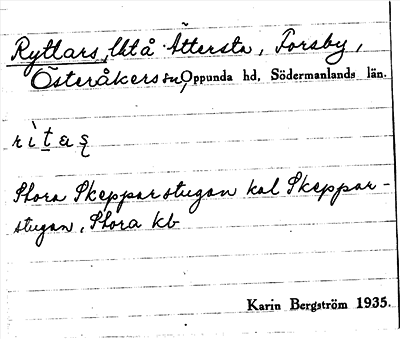 Ryttars, Utå Ättersta, Forsby,
Österåkers sn, Oppunda hd, Södermanlands län.
Stora Skepparstugan kal Skeppar-
stugan, Stora kb
Karin Bergström 1935.